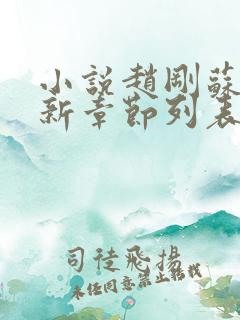 小說趙剛蘇
新章節列表
司徒飛揚
未經同意禁止轉載